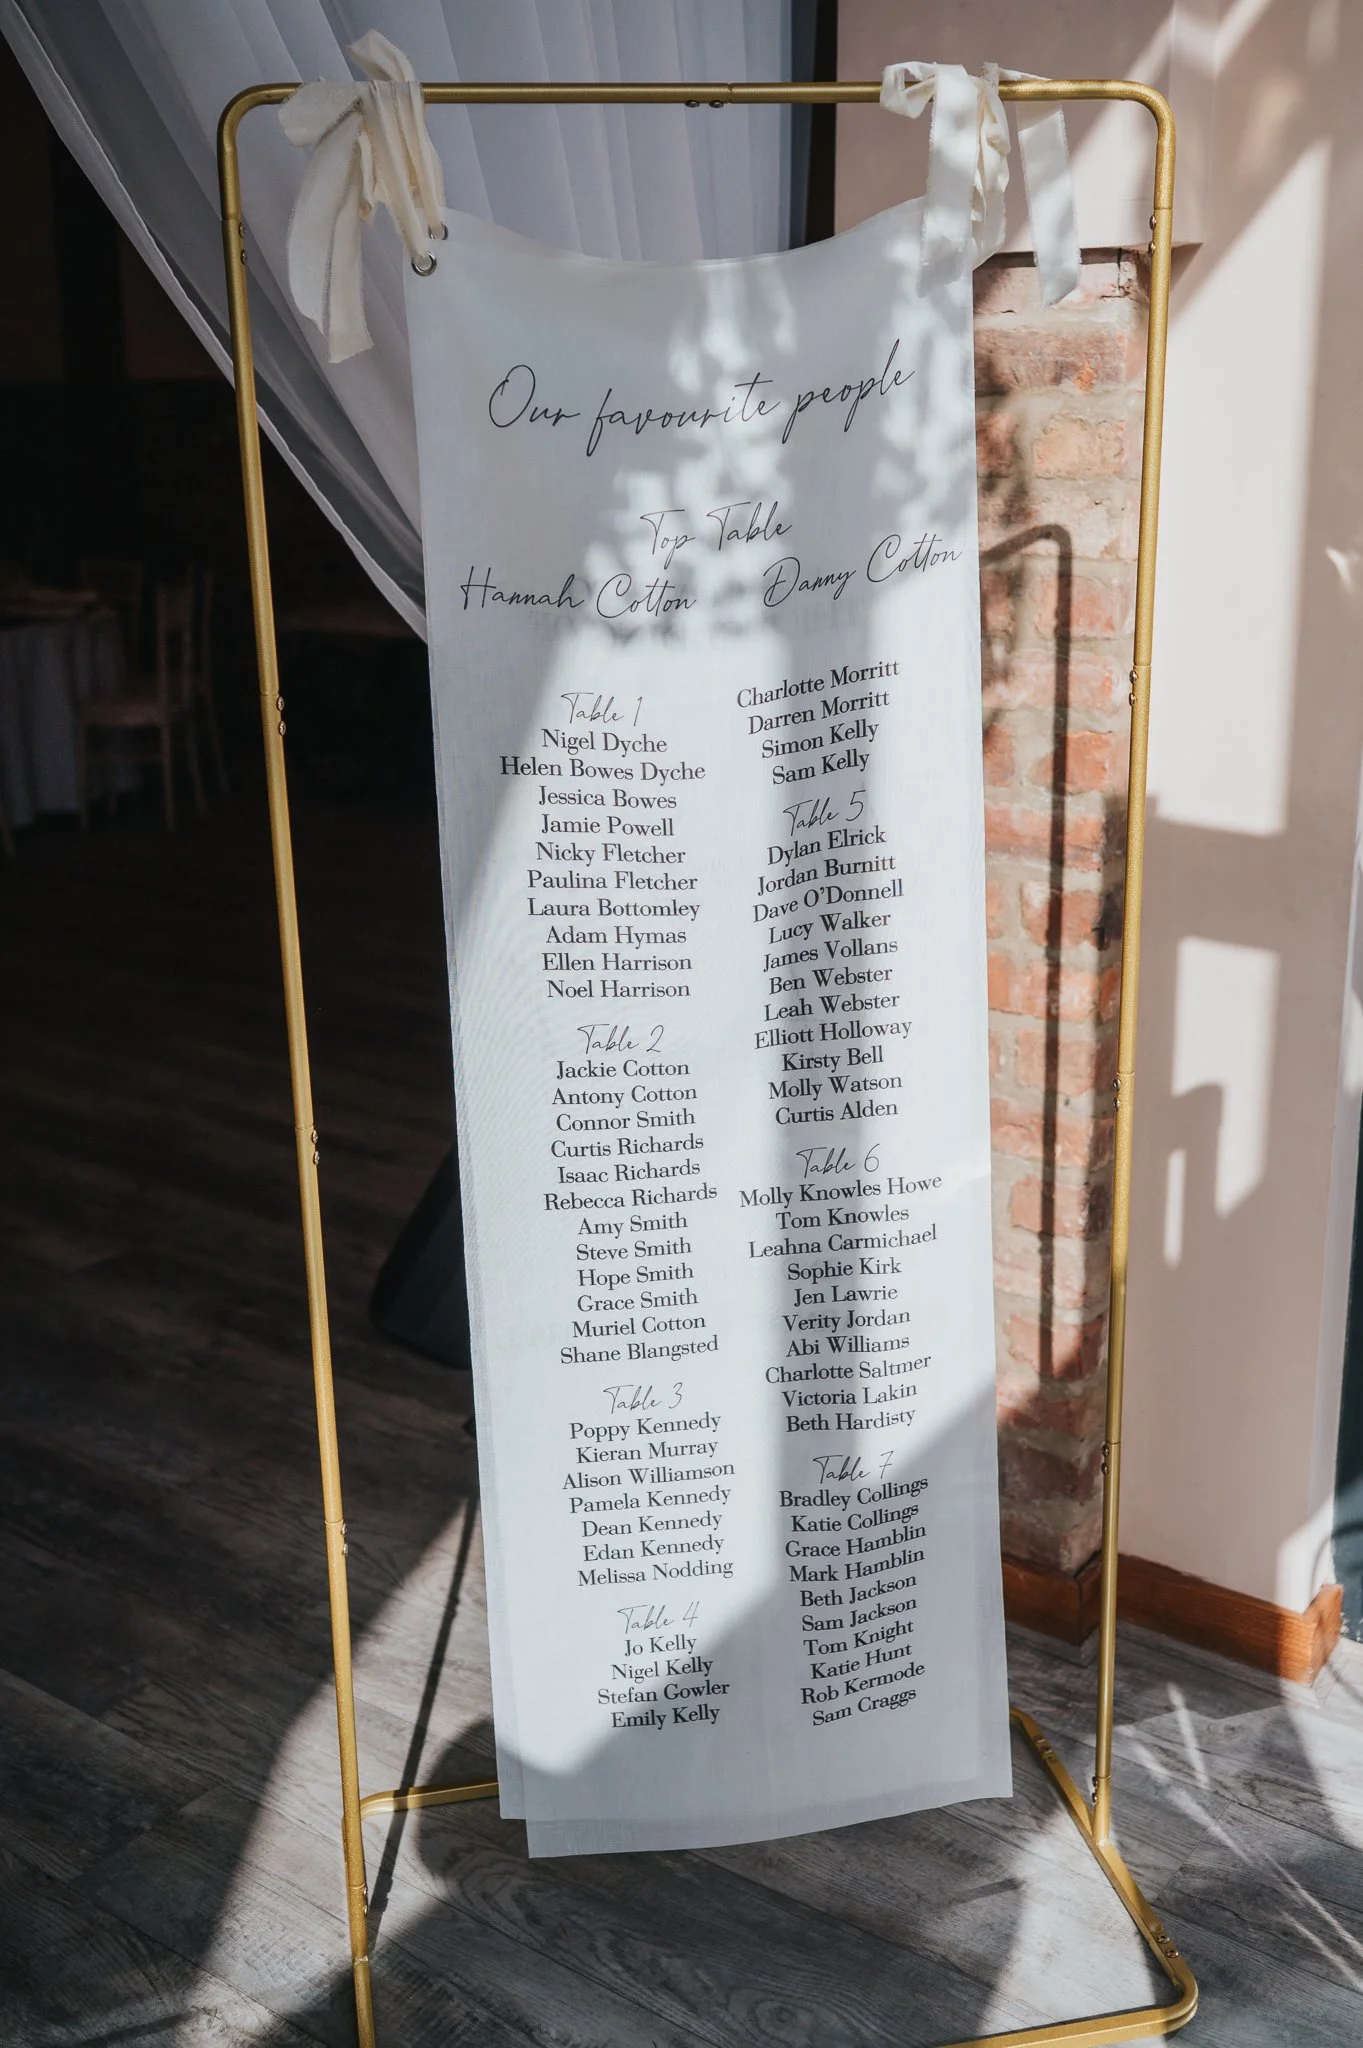 Our favourite people
Top Table
Hannah Cotton Danny Cotton
Table 1
Nigel Dyche
Helen Bowes Dyche
Jessica Bowes
Jamie Powell
Nicky Fletcher
Paulina Fletcher
Laura Bottomley
Adam Hymas
Ellen Harrison
Noel Harrison
Table 2
Jackie Cotton
Antony Cotton
Connor Smith
Curtis Richards
Isaac Richards
Rebecca Richards
Amy Smith
Steve Smith
Hope Smith
Grace Smith
Muriel Cotton
Shane Blangsted
Table 3
Poppy Kennedy
Kieran Murray
Alison Williamson
Pamela Kennedy
Dean Kennedy
Edan Kennedy
Melissa Nodding
Table 4
Jo Kelly
Nigel Kelly
Stefan Gowler
Emily Kelly
Charlotte Morritt
Darren Morritt
Simon Kelly
Sam Kelly
Table 5
Dylan Elrick
Jordan Burnitt
Dave O'Donnell
Lucy Walker
James Vollans
Ben Webster
Leah Webster
Elliott Holloway
Kirsty Bell
Molly Watson
Curtis Alden
Table 6
Molly Knowles Howe
Tom Knowles
Leahna Carmichael
Sophie Kirk
Jen Lawrie
Verity Jordan
Abi Williams
Charlotte Saltmer
Victoria Lakin
Beth Hardisty
Table 7
Bradley Collings
Katie Collings
Grace Hamblin
Mark Hamblin
Beth Jackson
Sam Jackson
Tom Knight
Katie Hunt
Rob Kermode
Sam Craggs